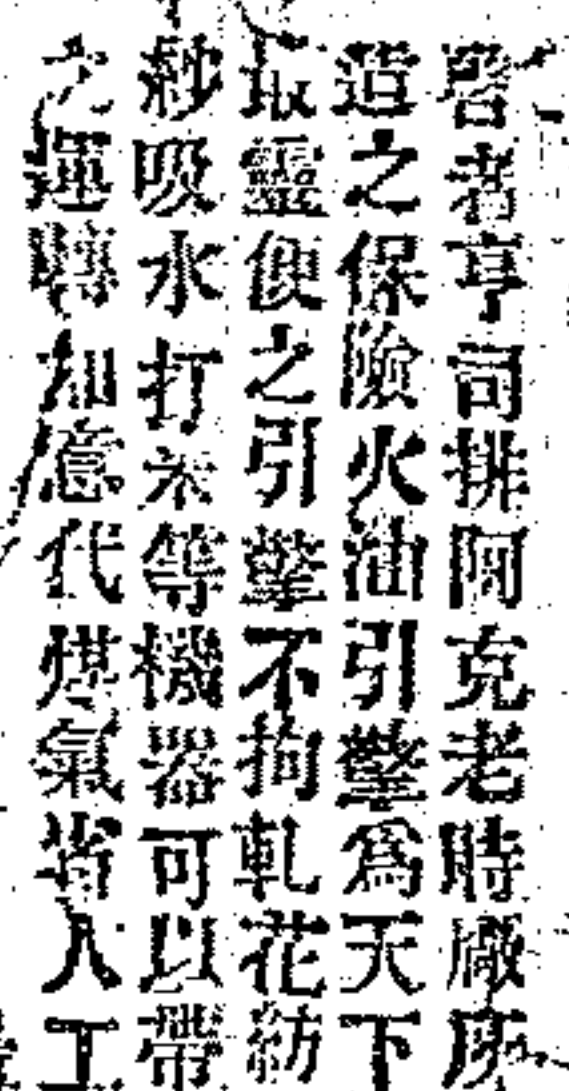 啓者亨司排阿克老時廠所
造之保險火油引擎爲天下
最靈便之引擎不拘軋花紡
紗吸水打米等機器可以帶
之運轉如意代煤氣省人工